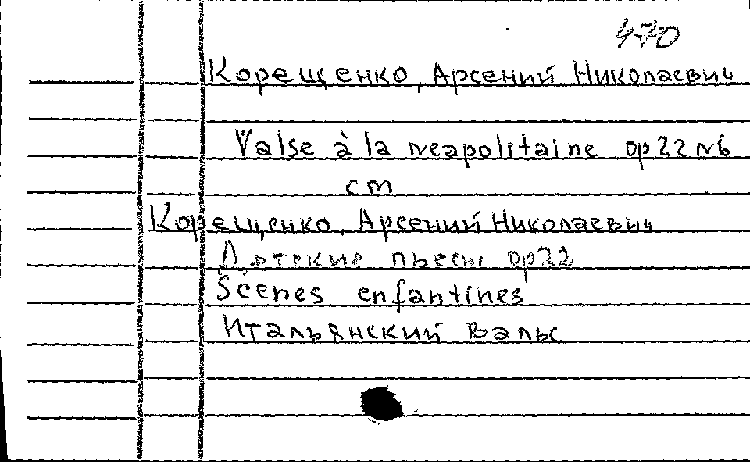 470
Корещенко, Арсений Николаевич
Valse à la neapolitaine op 22 N6
cm
Корещенко, Арсений Николаевич
Детские пьесы op 22
Scènes enfantines
Итальянский вальс